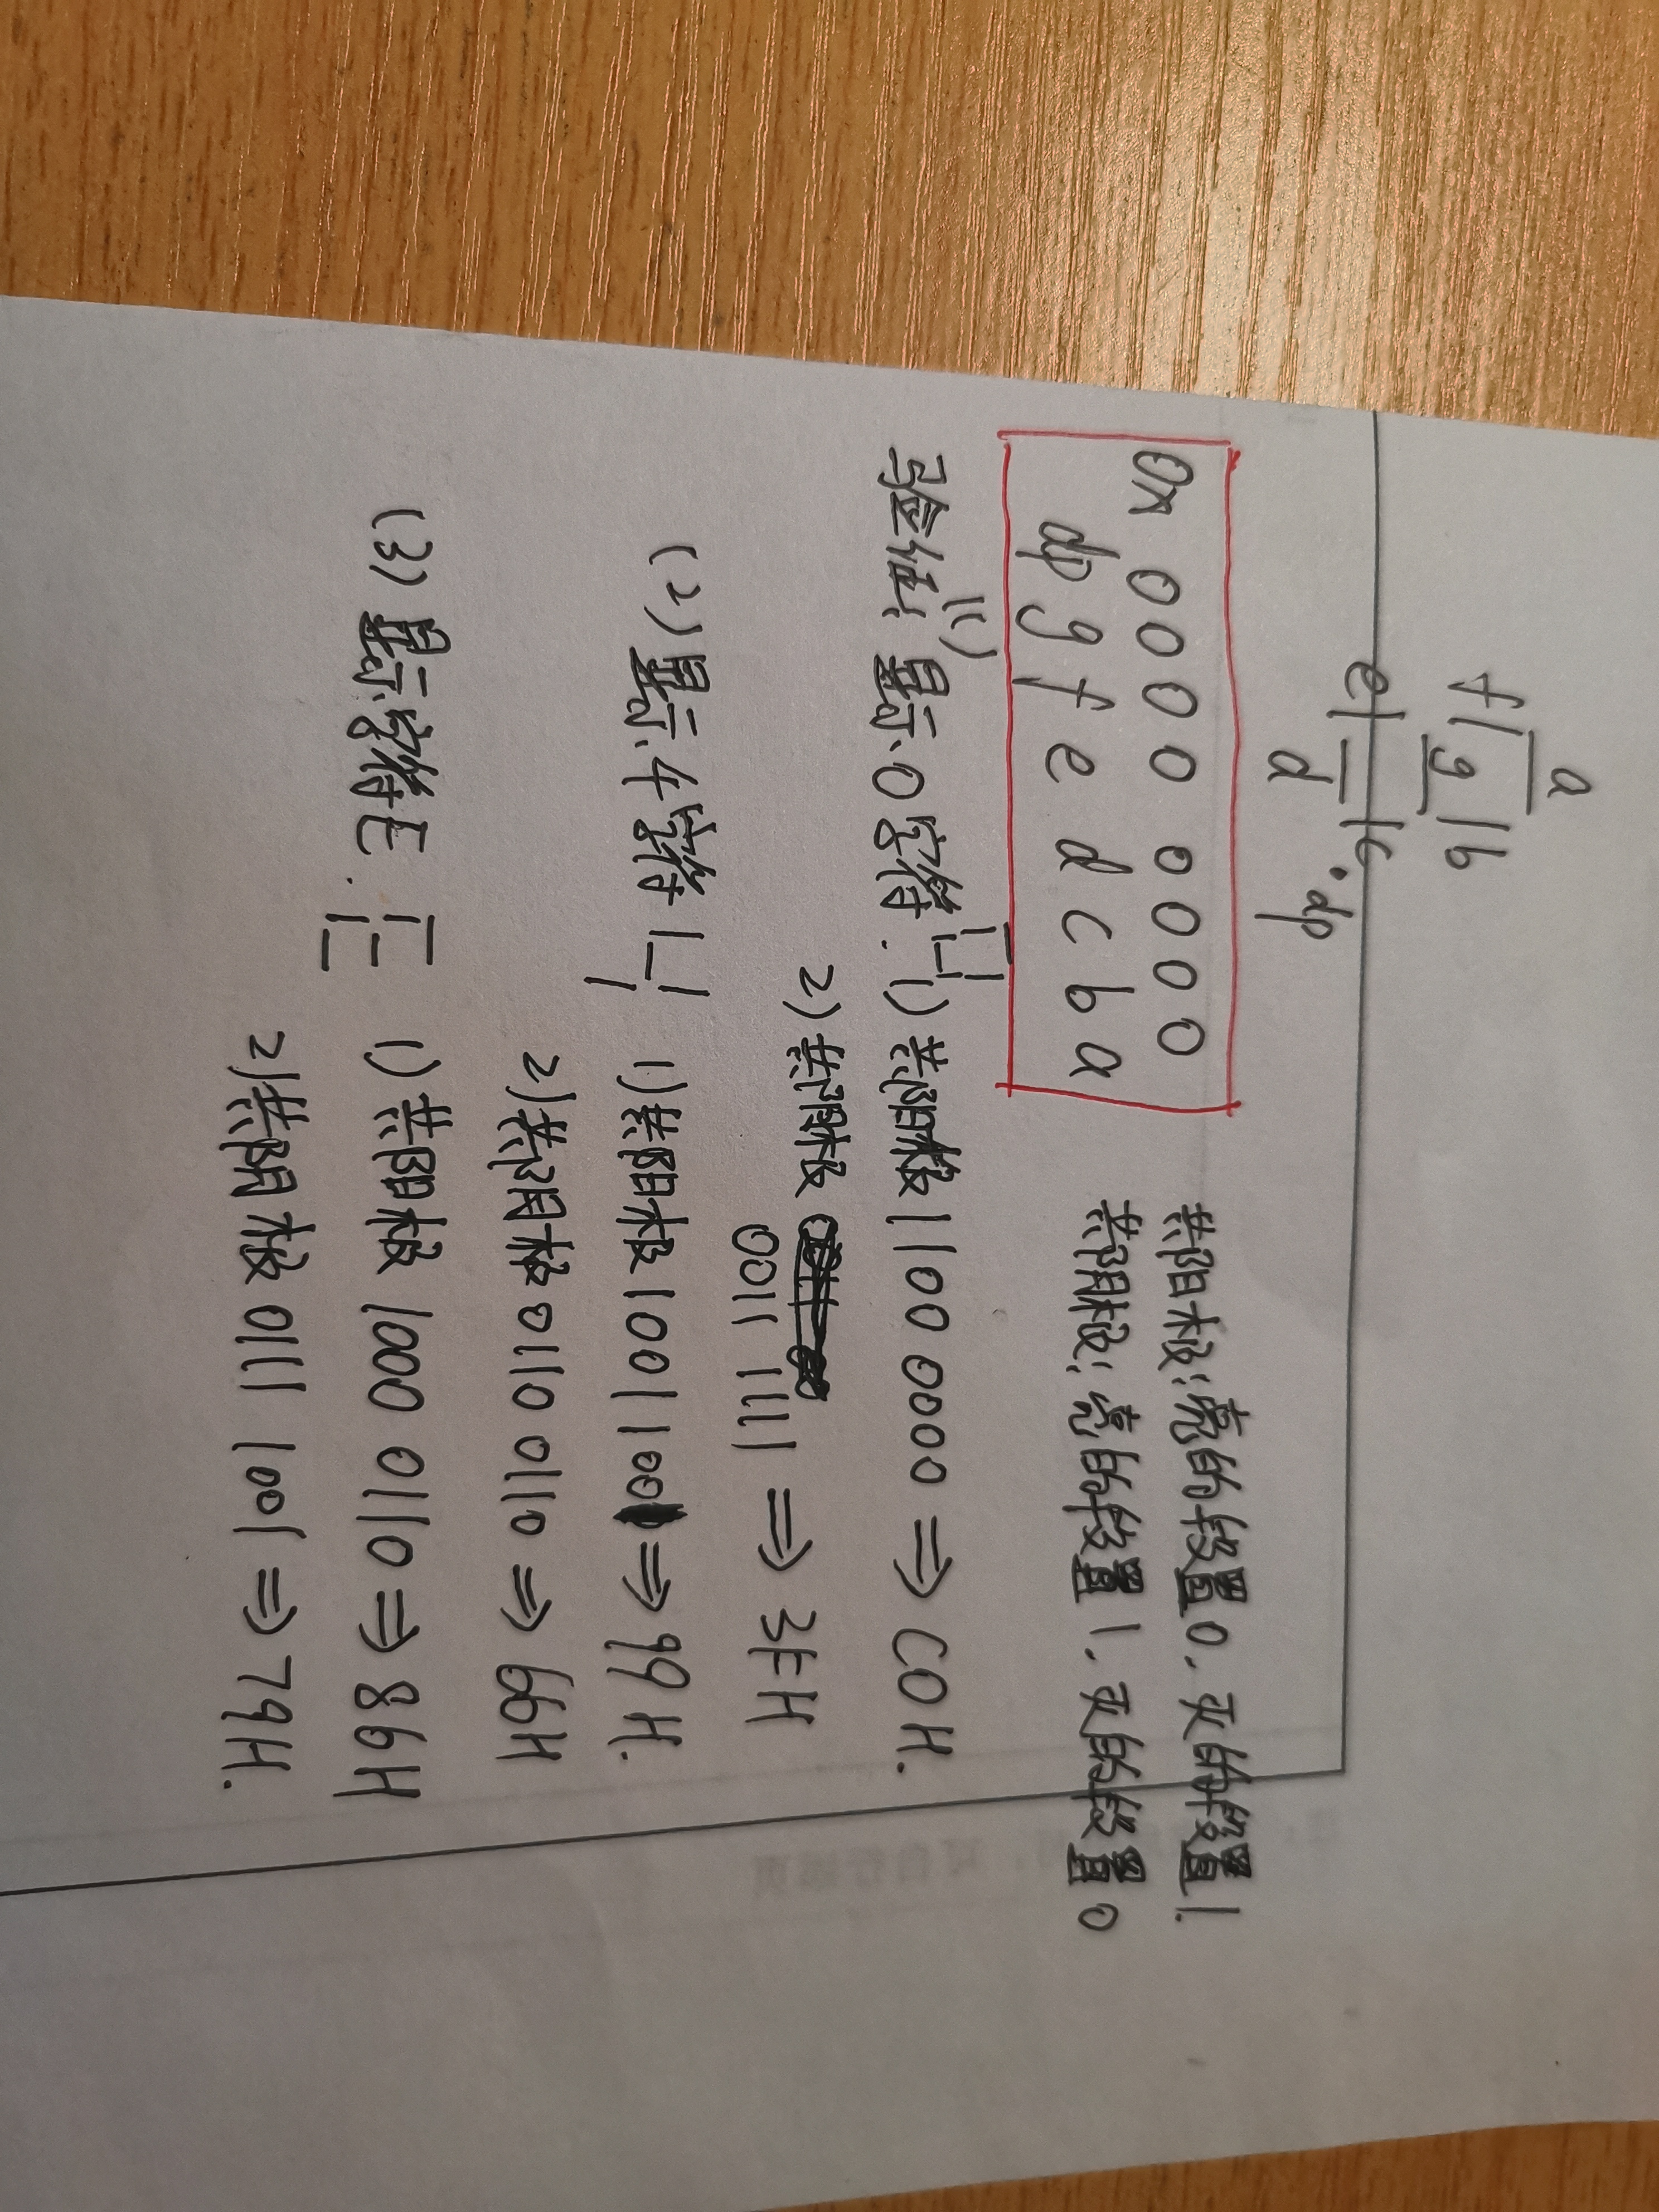 a
f g b
e c
d dp
0x 0000 0000
dp g f e d c b a
共阳极:亮的段置0.灭的段置1.
共阴极:亮的段置1.灭的段置0
验证: (1) 显示0字符. 1) 共阳极 1100 0000 ⇒ C0H.
2) 共阴极
0011 1111 ⇒ 3FH
(2) 显示4字符 1) 共阳极 1001 1001 ⇒ 99H.
2) 共阴极 0110 0110 ⇒ 66H
(3) 显示字符E. 1) 共阳极 1000 0110 ⇒ 86H
2) 共阴极 0111 1001 ⇒ 79H.